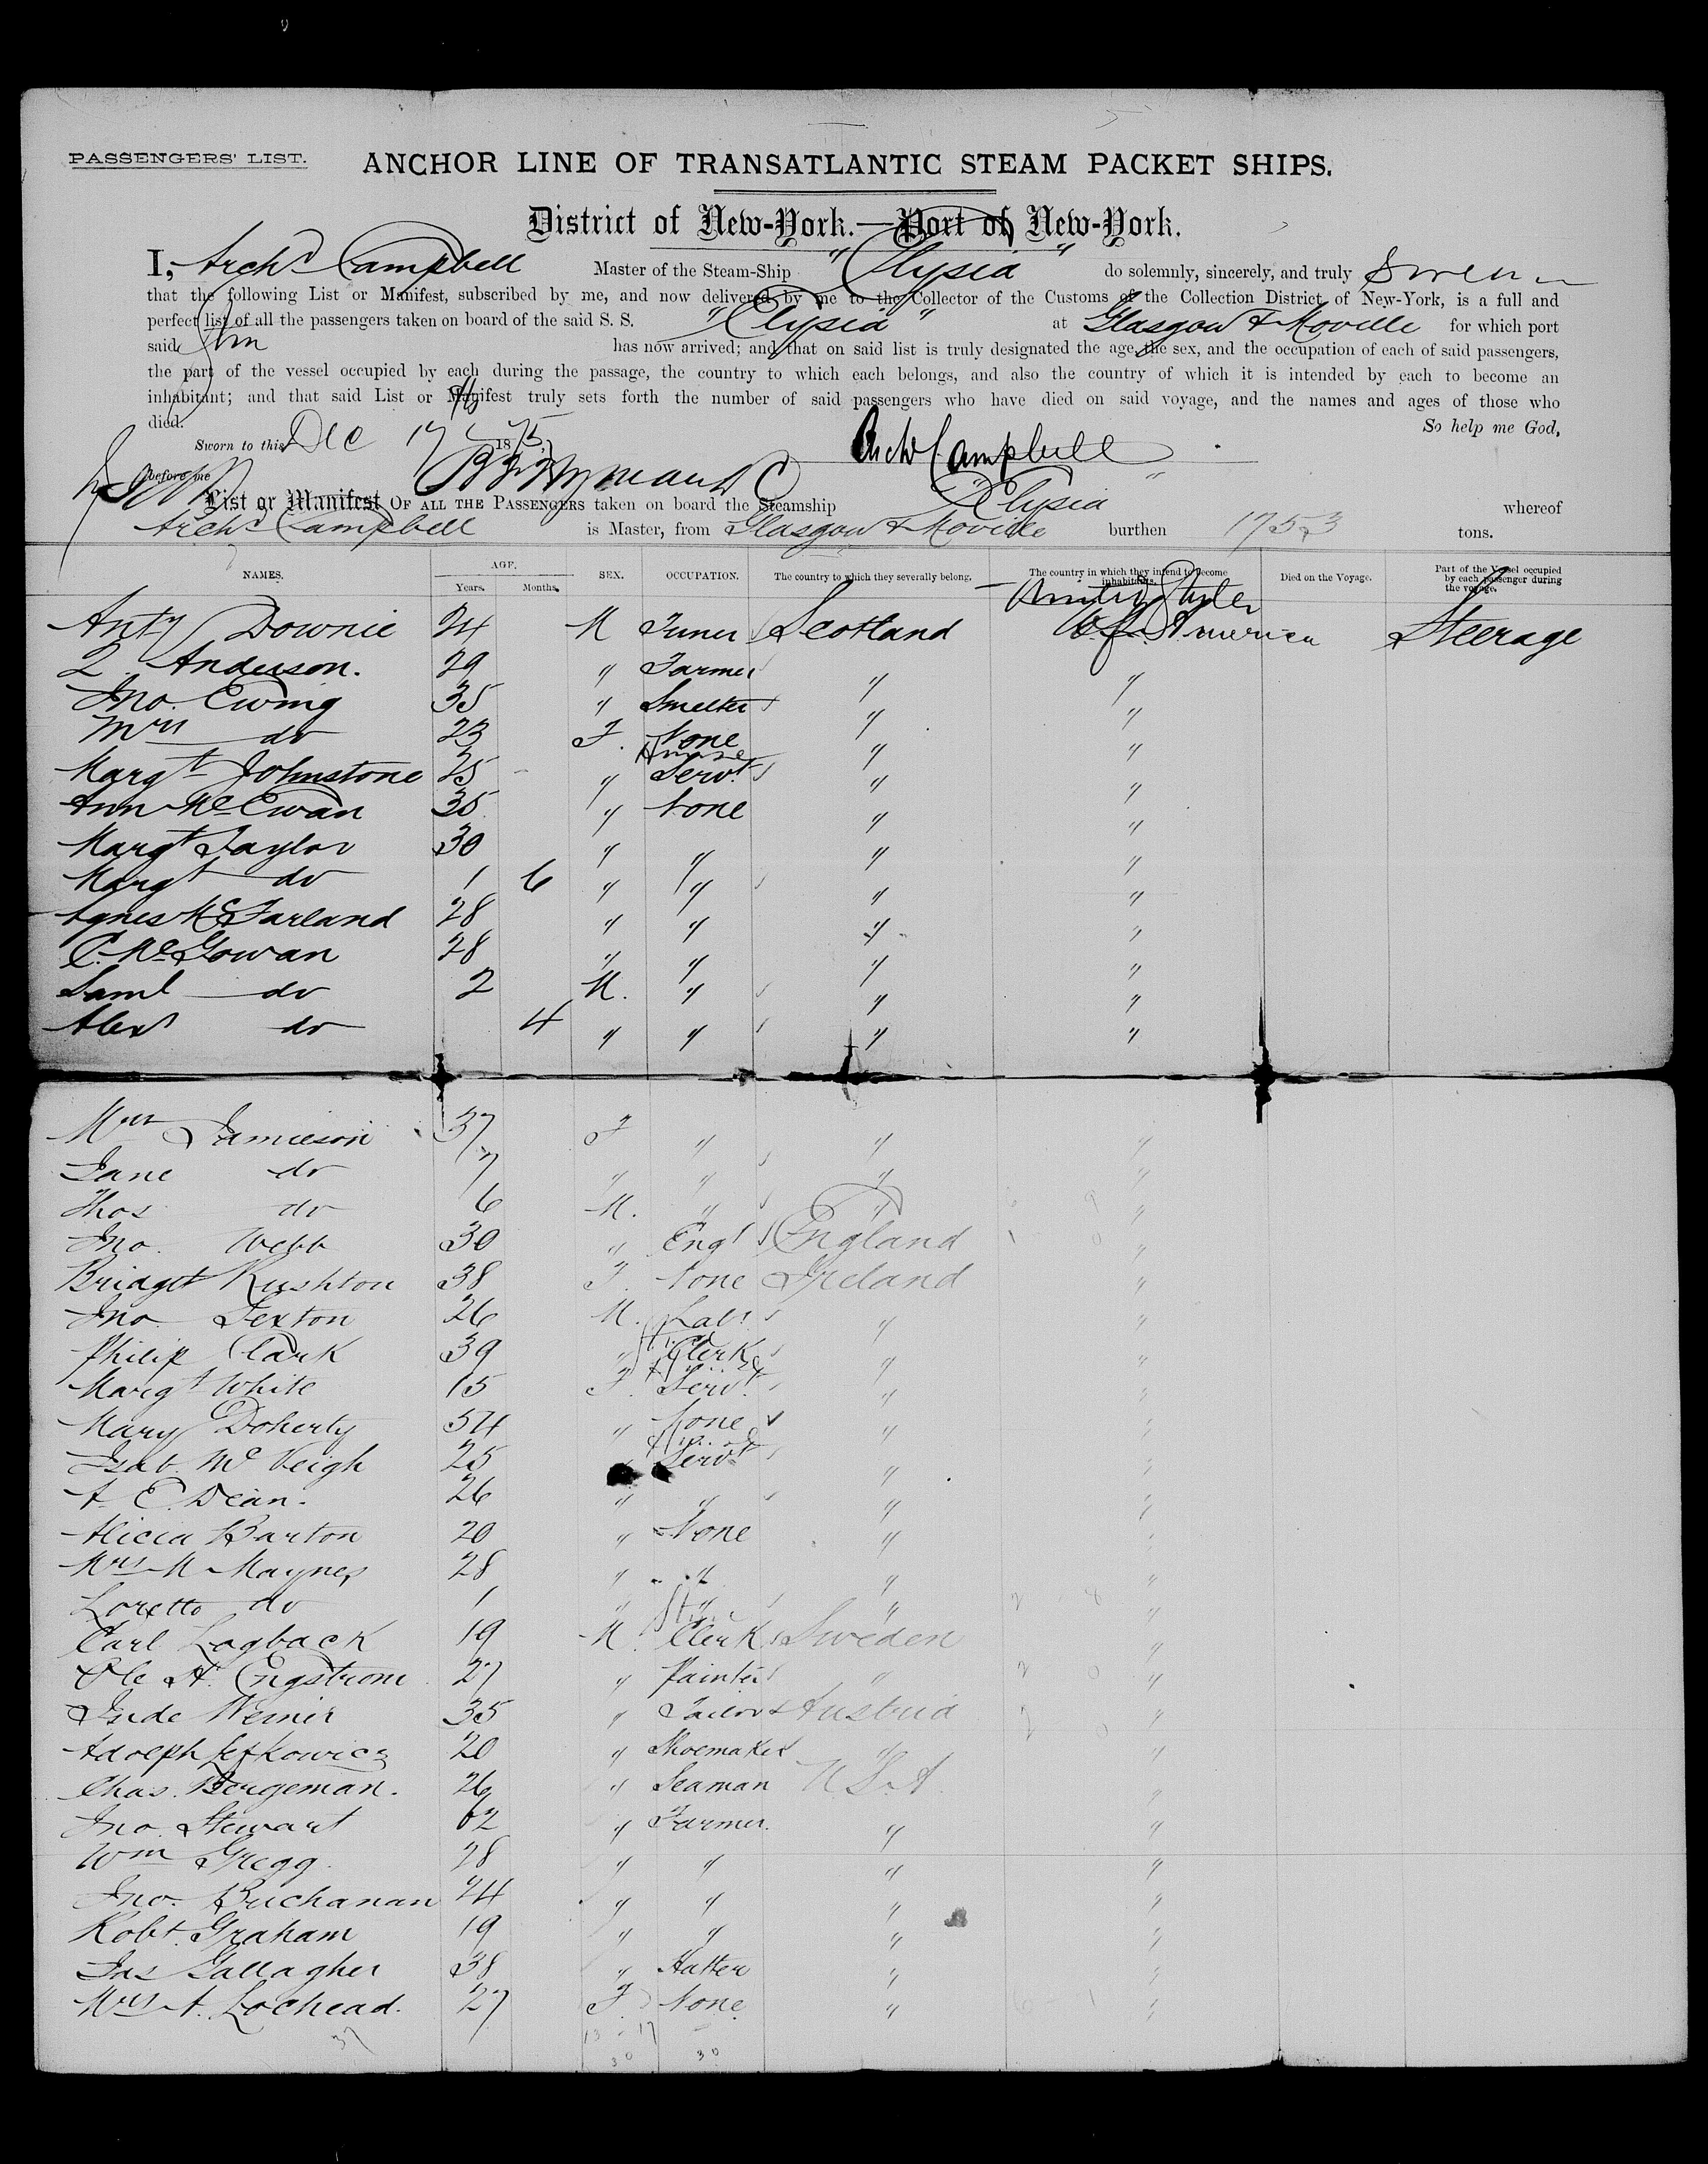 PASSENGERS' LIST. ANCHOR LINE OF TRANSATLANTIC STEAM PACKET SHIPS.
District of New-York.—Port of New-York.
I, Archd Campbell Master of the Steam-Ship "Elysia" do solemnly, sincerely, and truly Swear
that the following List or Manifest, subscribed by me, and now delivered by me to the Collector of the Customs of the Collection District of New-York, is a full and
perfect list of all the passengers taken on board of the said S. S. "Elysia" at Glasgow & Moville for which port
said has now arrived; and that on said list is truly designated the age, the sex, and the occupation of each of said passengers,
the part of the vessel occupied by each during the passage, the country to which each belongs, and also the country of which it is intended by each to become an
inhabitant; and that said List or Manifest truly sets forth the number of said passengers who have died on said voyage, and the names and ages of those who
died. So help me God,
Sworn to this Dec 17 1875 Archd Campbell
before me
List or Manifest OF ALL THE PASSENGERS taken on board the Steamship "Elysia" whereof
Archd Campbell is Master, from Glasgow & Moville burthen 1753 tons.
NAMES. AGE. Years. Months. SEX. OCCUPATION. The country to which they severally belong. The country in which they intend to become inhabitants. Died on the Voyage. Part of the Vessel occupied by each passenger during the voyage.
Anty Downie 24 M Scotland United States of America Steerage
Anderson. 29 " Farmer " "
Jno. Ewing 35 " Smelter " "
Mrs do 23 F. None " "
Margt Johnstone 25 " House Servt " "
Ann McEwan 35 " None " "
Margt Taylor 30 " " " "
Margt do 1 6 " " " "
Agnes McFarland 28 " " " "
C. McGowan 28 " " " "
Saml do 2 M. " " "
Alexr do 4 " " " "
Mrs Jamieson 37 F " " "
Jane do 7 " " " "
Thos do 6 M. " " "
Jno. Webb 30 " Engr England "
Bridget Rushton 38 F. None Ireland "
Jno Sexton 26 M. Labr " "
Philip Clark 39 " Clerk " "
Margt White 15 F. Servt " "
Mary Doherty 54 " None " "
Isab. McVeigh 25 Servt " "
A. E. Dean. 26 " " " "
Alicia Barton 20 " None " "
Mrs M Maynes 28 " " " "
Loretto do 1 " " " "
Carl Logback 19 M. Clerk Sweden "
Ole A. Engstrom 27 " Painter " "
Jude Weiner 35 " Tailor Austria "
Adolph Lefkowicz 20 " Shoemaker " "
Chas. Bergeman. 26 " Seaman U.S.A. "
Jno. Stewart 62 " Farmer. " "
Wm Gregg. 28 " " " "
Jno. Buchanan 24 " " " "
Robt. Graham 19 " " " "
Jas Gallagher 38 " Hatter " "
Mrs A. Lochead. 27 F. None " "
37 13 - 17
30 30